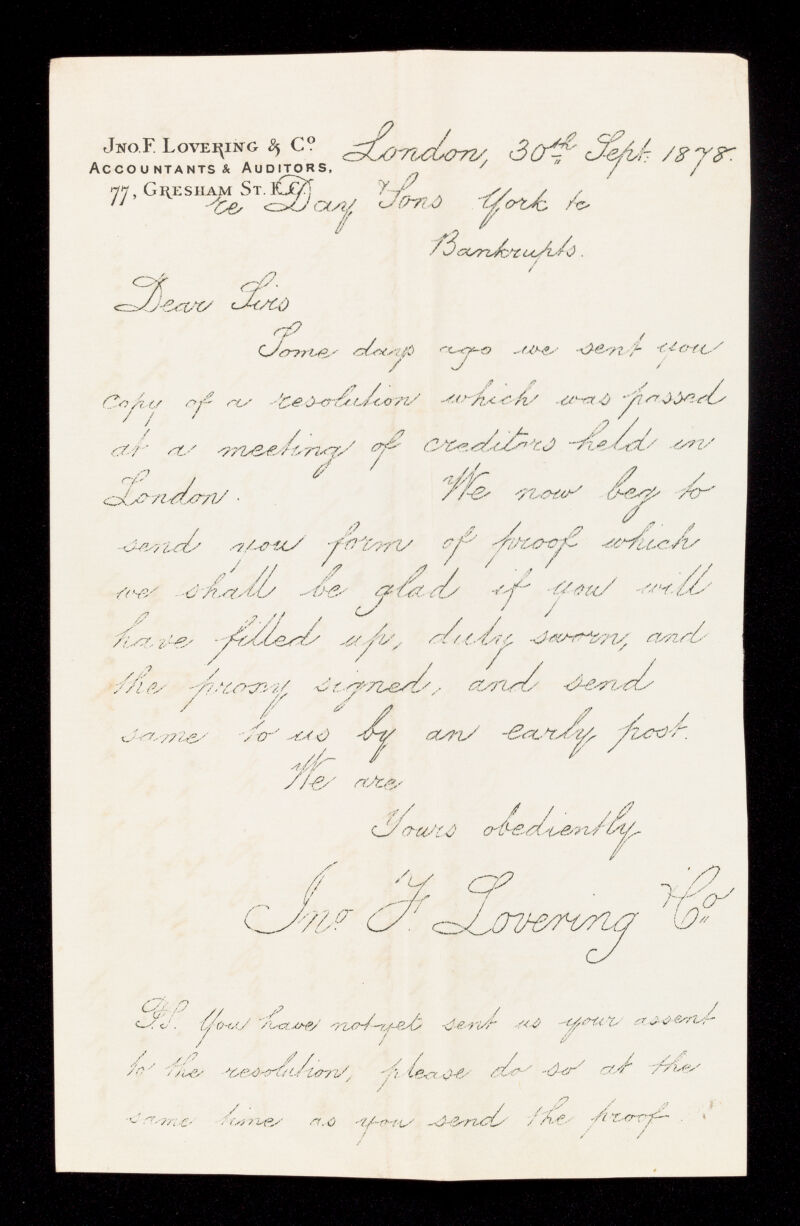 JNO. F. LOVERING & Cº
ACCOUNTANTS & AUDITORS,
77, GRESHAM ST. E.C.
London, 30th Sept. 1878.
re Day & Sons York &c
Bankrupts.
Dear Sirs
Some days ago we sent you
copy of a resolution which was passed
at a meeting of creditors held in
London. We now beg to
send you form of proof which
we shall be glad if you will
have filled up, duly sworn, and
the proxy signed, and send
same to us by an early post.
We are
Yours obediently
Jnº F. Lovering & Cº
P.S. You have not yet sent us your assent
to the resolution, please do so at the
same time as you send the proof